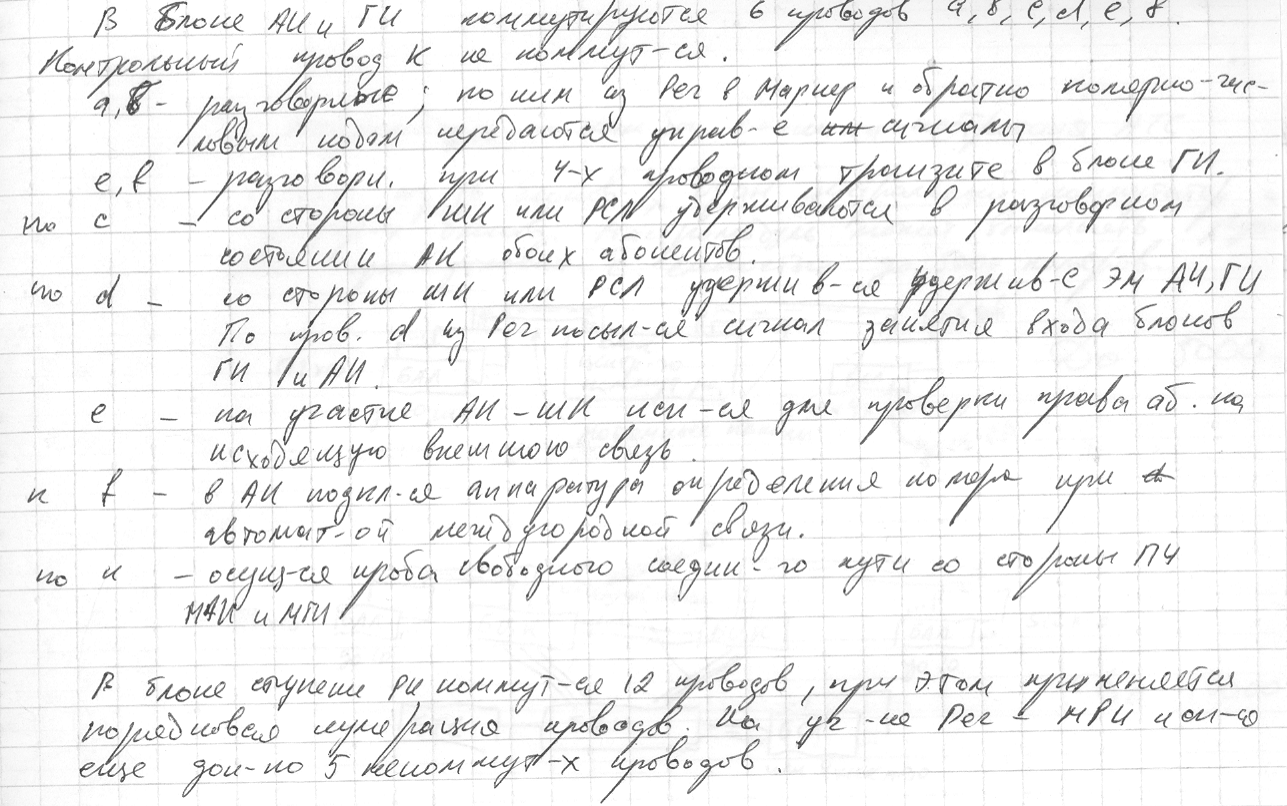 В блоке АИ и ГИ коммутируются 6 проводов a, b, c, d, e, f.
Контрольный провод К не коммут-ся.
a, b - разговорные; по ним из Рег в Маркер и обратно полярно-чис-
ловым кодом передаются управ-е сигналы
e, f - разговорн. при 4-х проводном транзите в блоке ГИ.
по c - со стороны ШК или РСЛ удерживаются в разговорном
состоянии АК обоих абонентов.
по d - со стороны ШК или РСЛ удержив-ся удержив-е ЭМ АИ, ГИ
По пров. d из Рег посыл-ся сигнал занятия входа блоков
ГИ и АИ.
e - на участке АК-ШК исп-ся для проверки права аб. на
исходящую внешнюю связь.
к f - в АК подкл-ся аппаратура определения номера при
автомат-ой междугородной связи.
по к - осущ-ся проба свободного соедин-го пути со стороны ПЧ
МАИ и МГИ
В блоке ступени РИ коммут-ся 12 проводов, при этом применяется
порядковая нумерация проводов. На уч-ке Рег - МРИ исп-ся
еще доп-но 5 некоммут-х проводов.